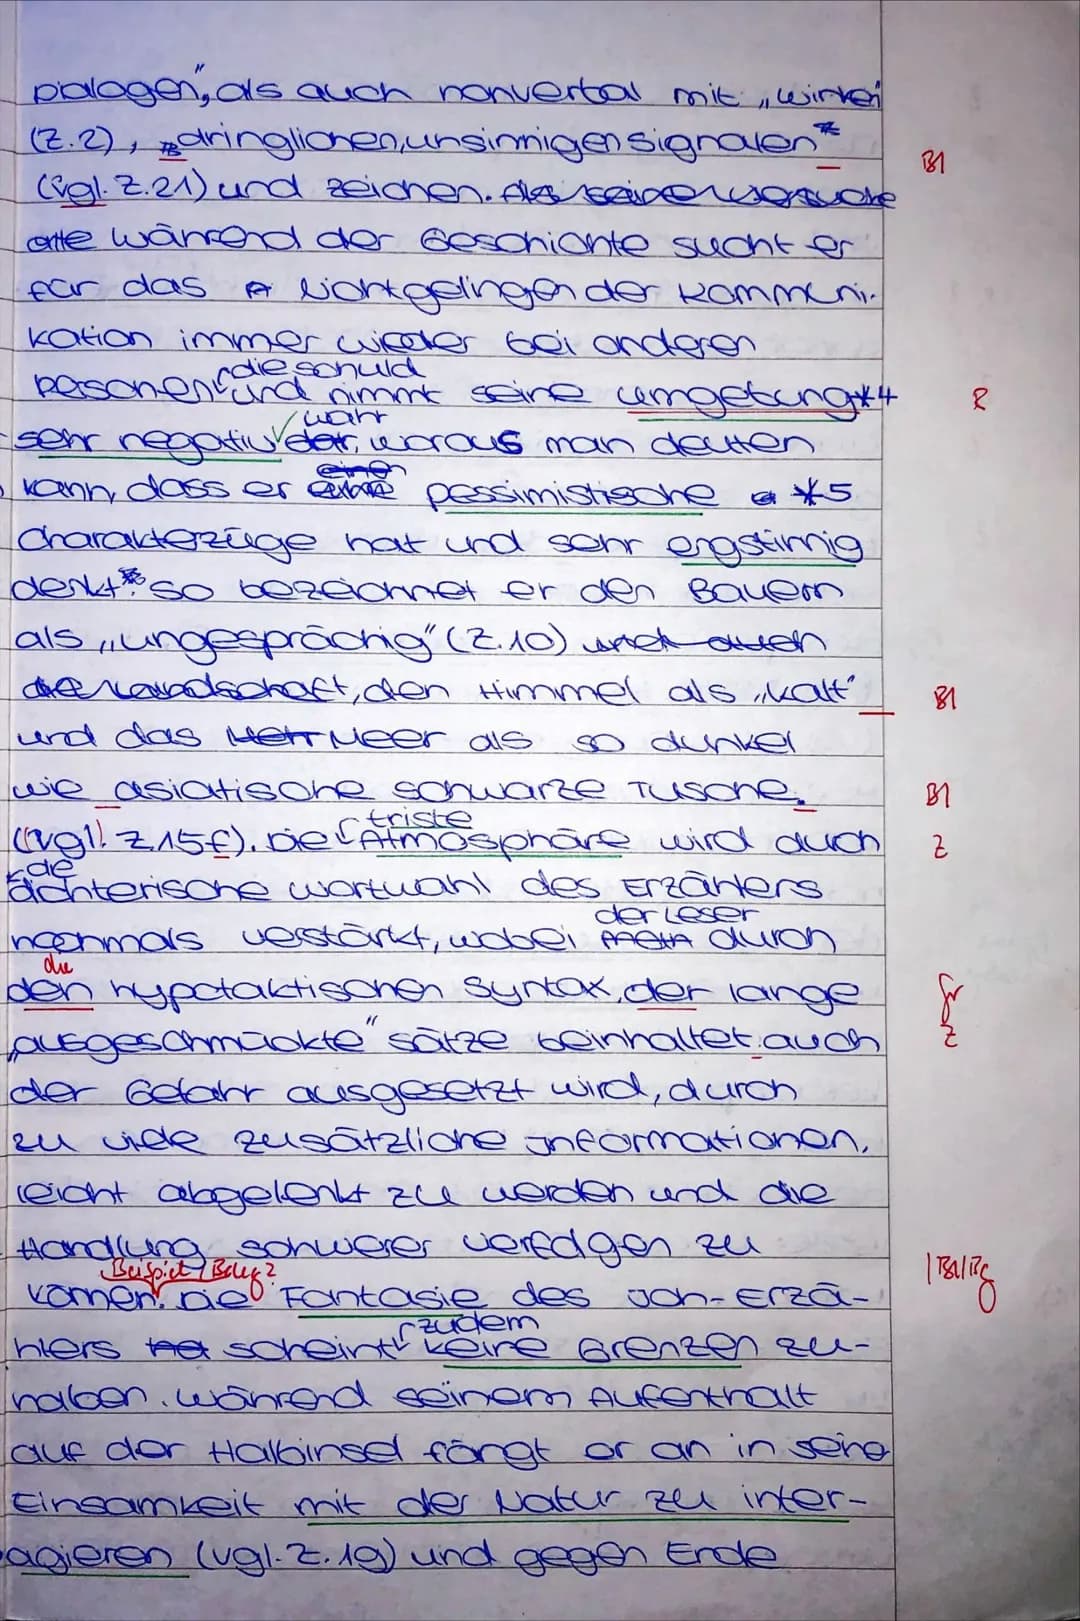 Dialogen", als auch nonverbal mit „Winken"
(Z.2), „dringlichen, unsinnigen Signalen" *
Bl
(vgl. Z.21) und Zeichen. Als seine Versuche
alle während der Geschichte sucht er
für das Nichtgelingen der Kommuni-
kation immer wieder bei anderen
die Schuld
Personen und nimmt seine Umgebung *4
R
wahr
sehr negativ dar, woraus man deuten
kann, dass er eine einen pessimistische *5
Charakterzüge hat und sehr engstirnig
denkt. So bezeichnet er den Bauern
als „ungesprächig" (Z.10) und auch
die Landschaft, den Himmel als „kalt"
Bl
und das Meer als so dunkel
wie asiatische schwarze Tusche.
Bl
triste
(vgl. Z.15f). Die Atmosphäre wird durch
Z
die
dichterische Wortwahl des Erzählers
der Leser
nochmals verstärkt, wobei durch
die
den hypotaktischen Syntax, der lange
Gr
„ausgeschmückte" Sätze beinhaltet, auch
Z
der Gefahr ausgesetzt wird, durch
zu viele zusätzliche Informationen,
leicht abgelenkt zu werden und die
Handlung schwerer verfolgen zu
Beispiel / Beleg?
können. Die Fantasie des Ich-Erzä-
zudem
hlers scheint keine Grenzen zu-
haben. Während seinem Aufenthalt
auf der Halbinsel fängt er an in seine
Einsamkeit mit der Natur zu inter-
agieren (vgl. Z.19) und gegen Ende